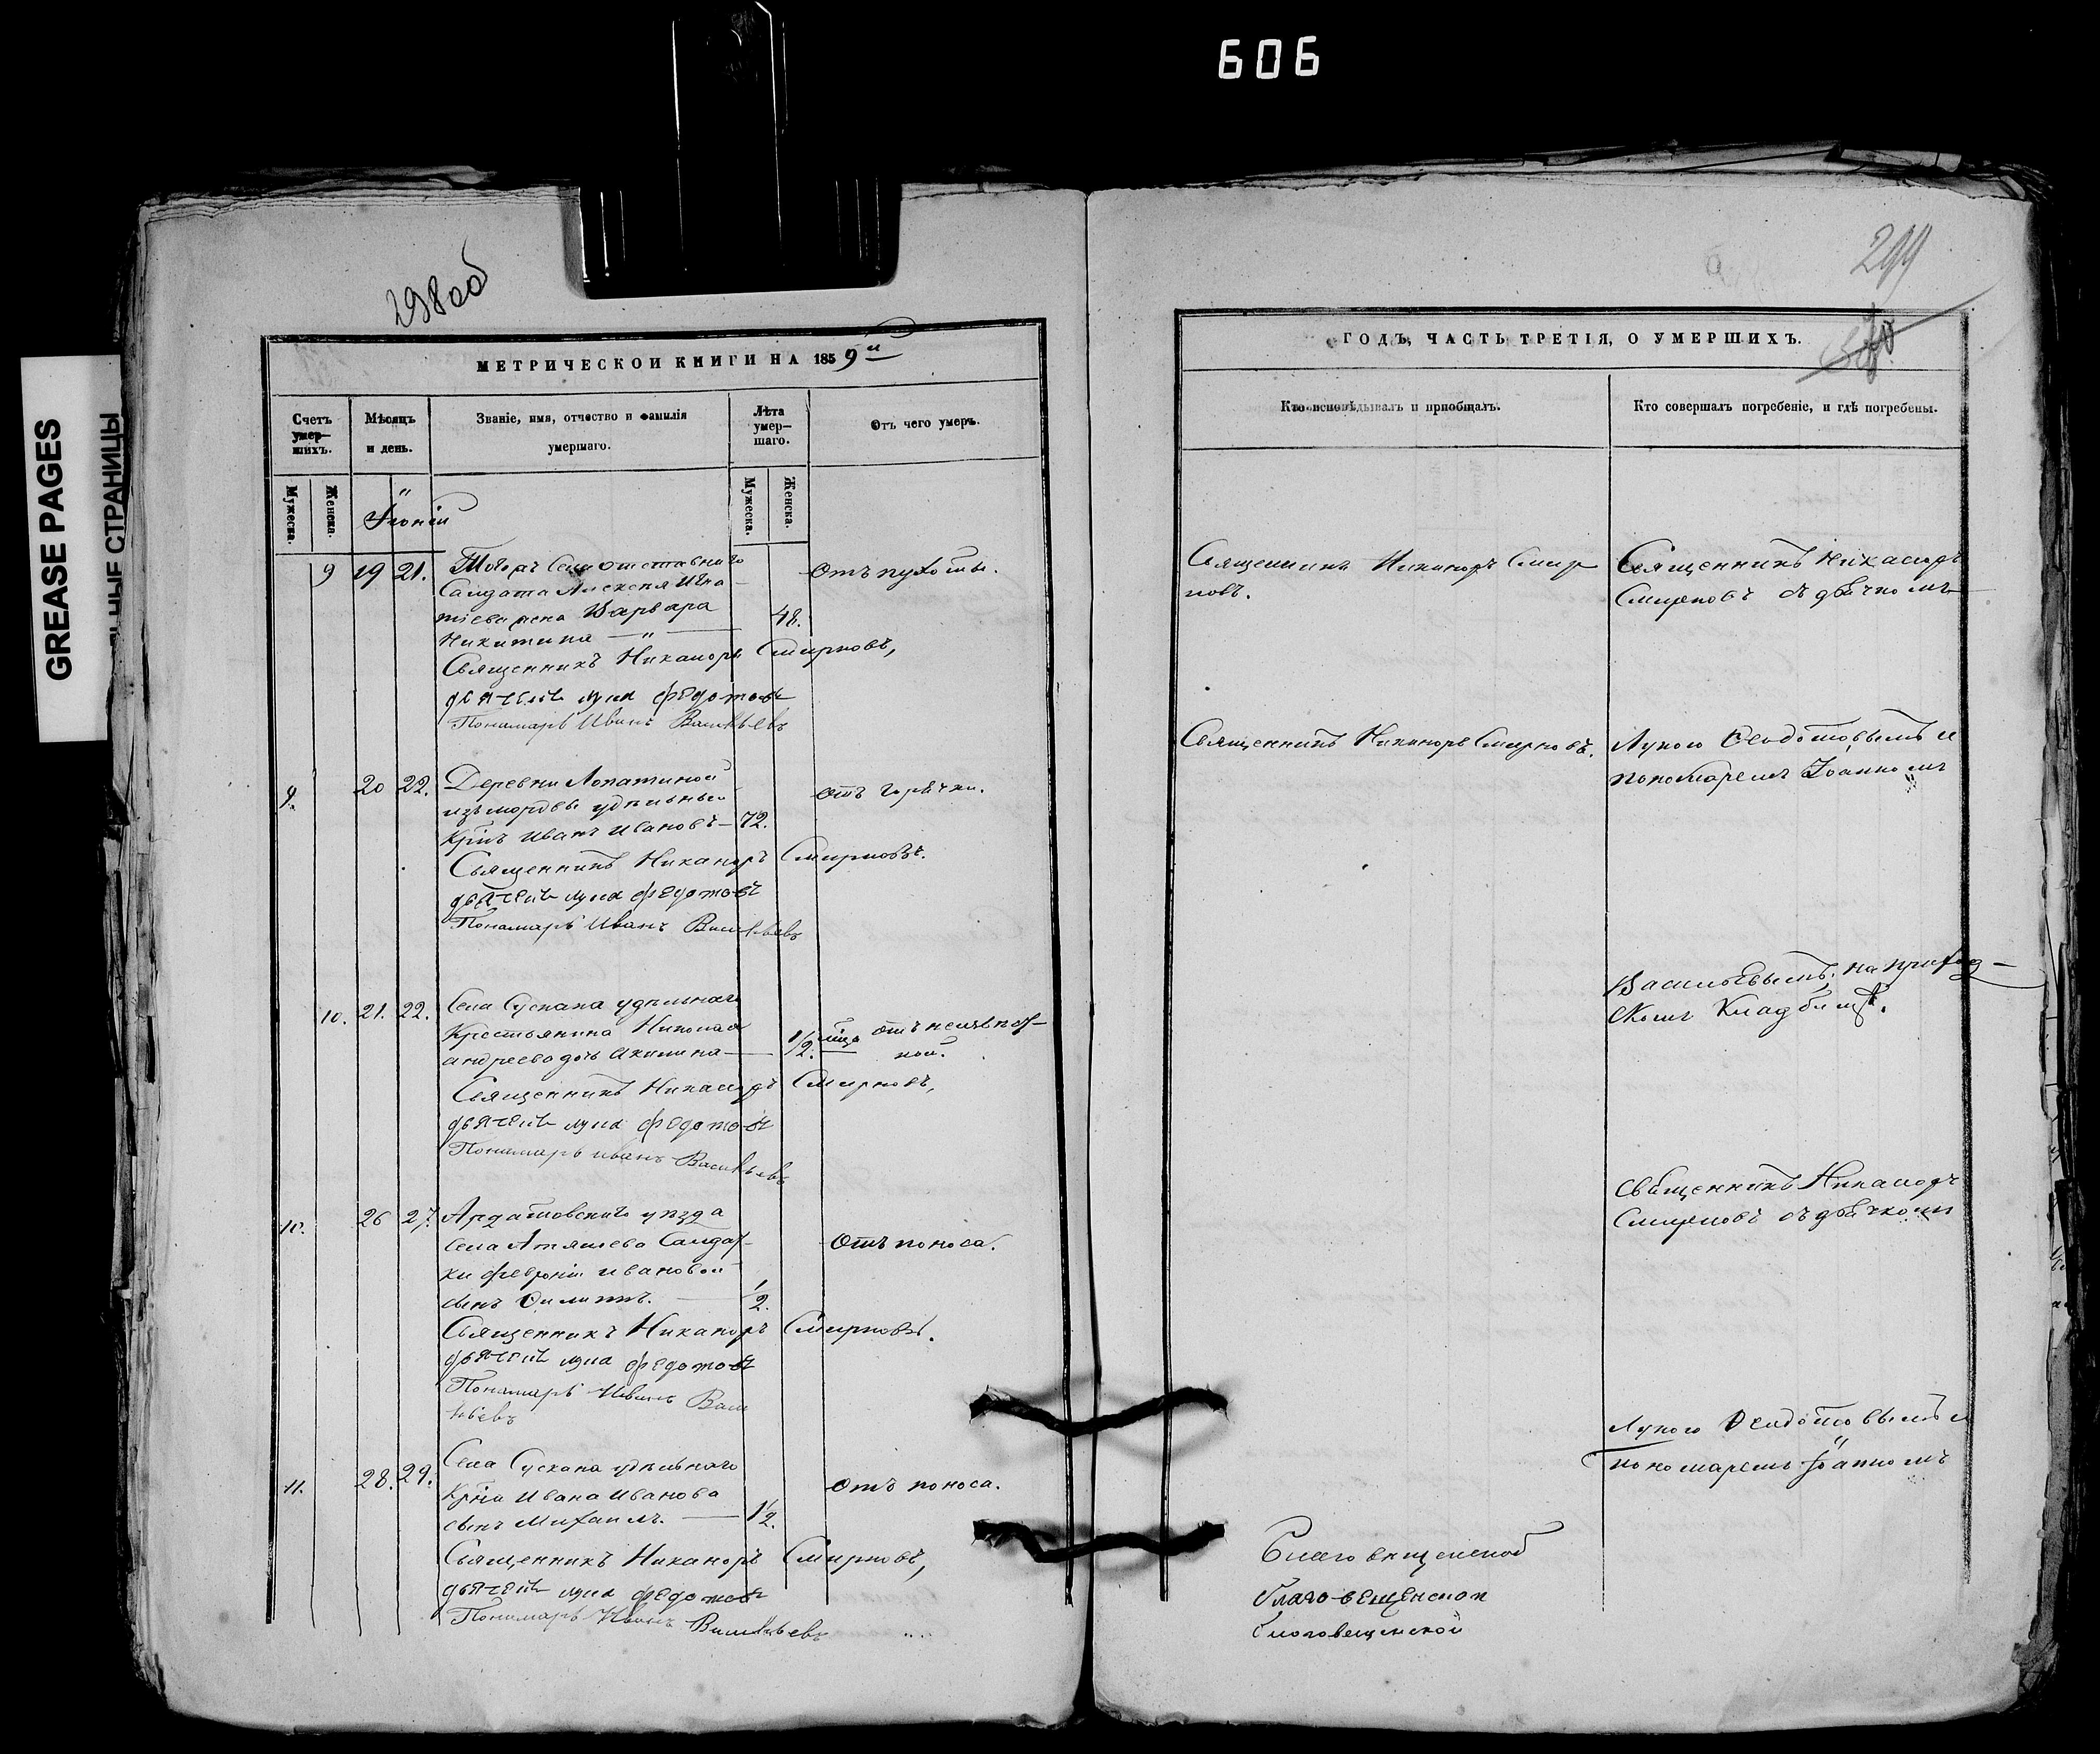 606
GREASE PAGES
СТРАНИЦЫ
298 об
МЕТРИЧЕСКОЙ КНИГИ НА 1859й
Счетъ умер-шихъ.
Мѣсяцъ и день.
Званіе, имя, отчество и фамилія умершаго.
Лѣта умер-шаго.
Отъ чего умеръ.
Мужеска.
Женска.
Мужеска.
Женска.
Іюній
9 19 21. Тогожъ Села отставнаго
Салдата Алексея Игна
тіева жена Варвара 48. Отъ пухоты.
Никитина — " —
Священникъ Никаноръ Смирновъ,
дьячекъ лука федотовъ
Пономарь Иванъ Васильевъ
9. 20 22. Деревни Лопатиной
изъ мордвы удѣльный Отъ горячки.
Крѣнъ Иванъ Ивановъ — 72.
Священникъ Никаноръ Смирновъ.
дьячекъ лука федотовъ
Пономарь Иванъ Васильевъ
10. 21. 22. Села Сускана удѣльнаго
Крестьянина Николая
андреева дочь акилина — 1/2.
Священникъ Никаноръ Смирновъ,
дьячекъ лука федотовъ
Пономарь иванъ Васильевъ
10. 26 27. Ардатовскаго уѣзда
Села Атяшева Салдат-
ки февроніи ивановой Отъ поноса.
сынъ Филиппъ. — 1/2.
Священникъ Никаноръ Смирновъ.
дьячекъ лука федотовъ
Пономарь Иванъ Васи
льевъ
11. 28. 29. Села Сускана удѣльнаго
Крѣна Ивана Иванова Отъ поноса.
сынъ Михаилъ. — 1 1/2.
Священникъ Никаноръ Смирновъ,
дьячекъ лука федотовъ
Пономарь Иванъ Васильевъ
299
ГОДЪ, ЧАСТЬ ТРЕТІЯ, О УМЕРШИХЪ.
Кто исповѣдывалъ и пріобщалъ.
Кто совершалъ погребеніе, и гдѣ погребены.
Священникъ Никаноръ Смир
новъ.
Священникъ Никаноръ
Смирновъ съ дьячкомъ
Священникъ Никаноръ Смирновъ.
Лукою Феодотовымъ и
пономаремъ Іоанномъ
Васильевымъ, на приход-
скомъ Кладбищѣ.
Священникъ Никаноръ
Смирновъ съ дьячкомъ
Лукою Феодотовымъ и
пономаремъ Іоанномъ
Благовѣщенской
благовещенской
благовещенской